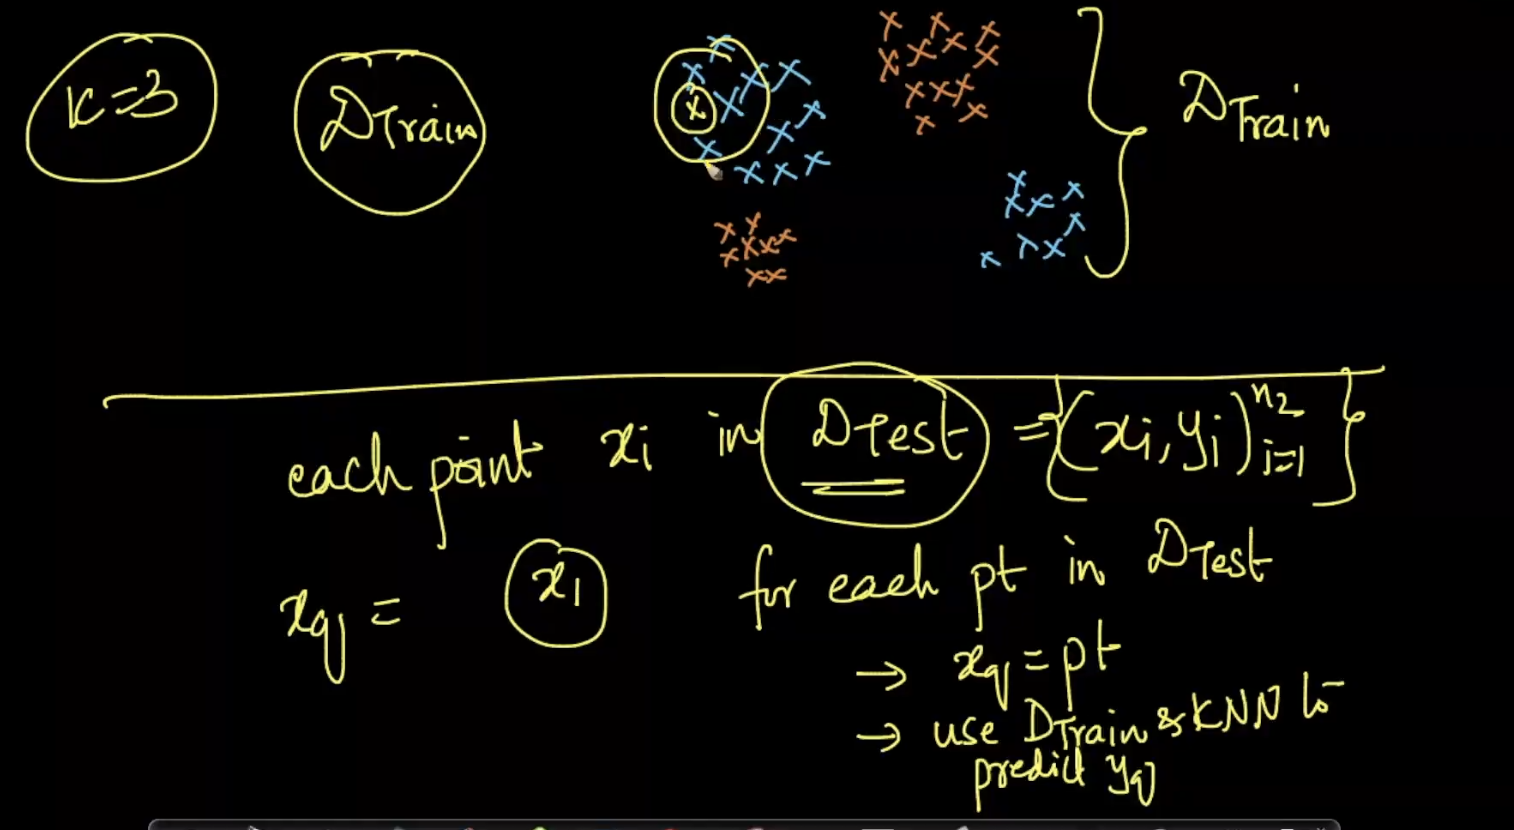 K=3
DTrain
DTrain
each point xi in DTest = {(xi, yi)^n2 i=1}
xq = x1
for each pt in DTest
→ xq = pt
→ use DTrain & KNN to
predict yq